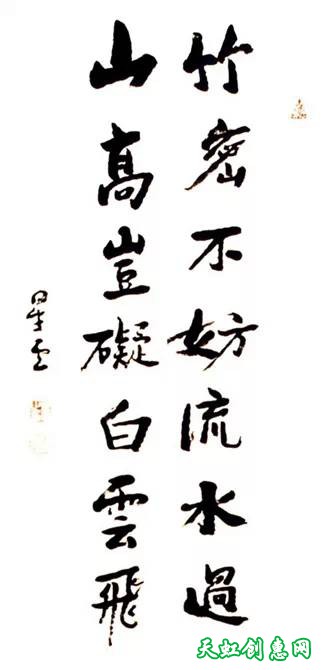 竹密不妨流水過
山高豈礙白雲飛
星雲
天虹创惠网